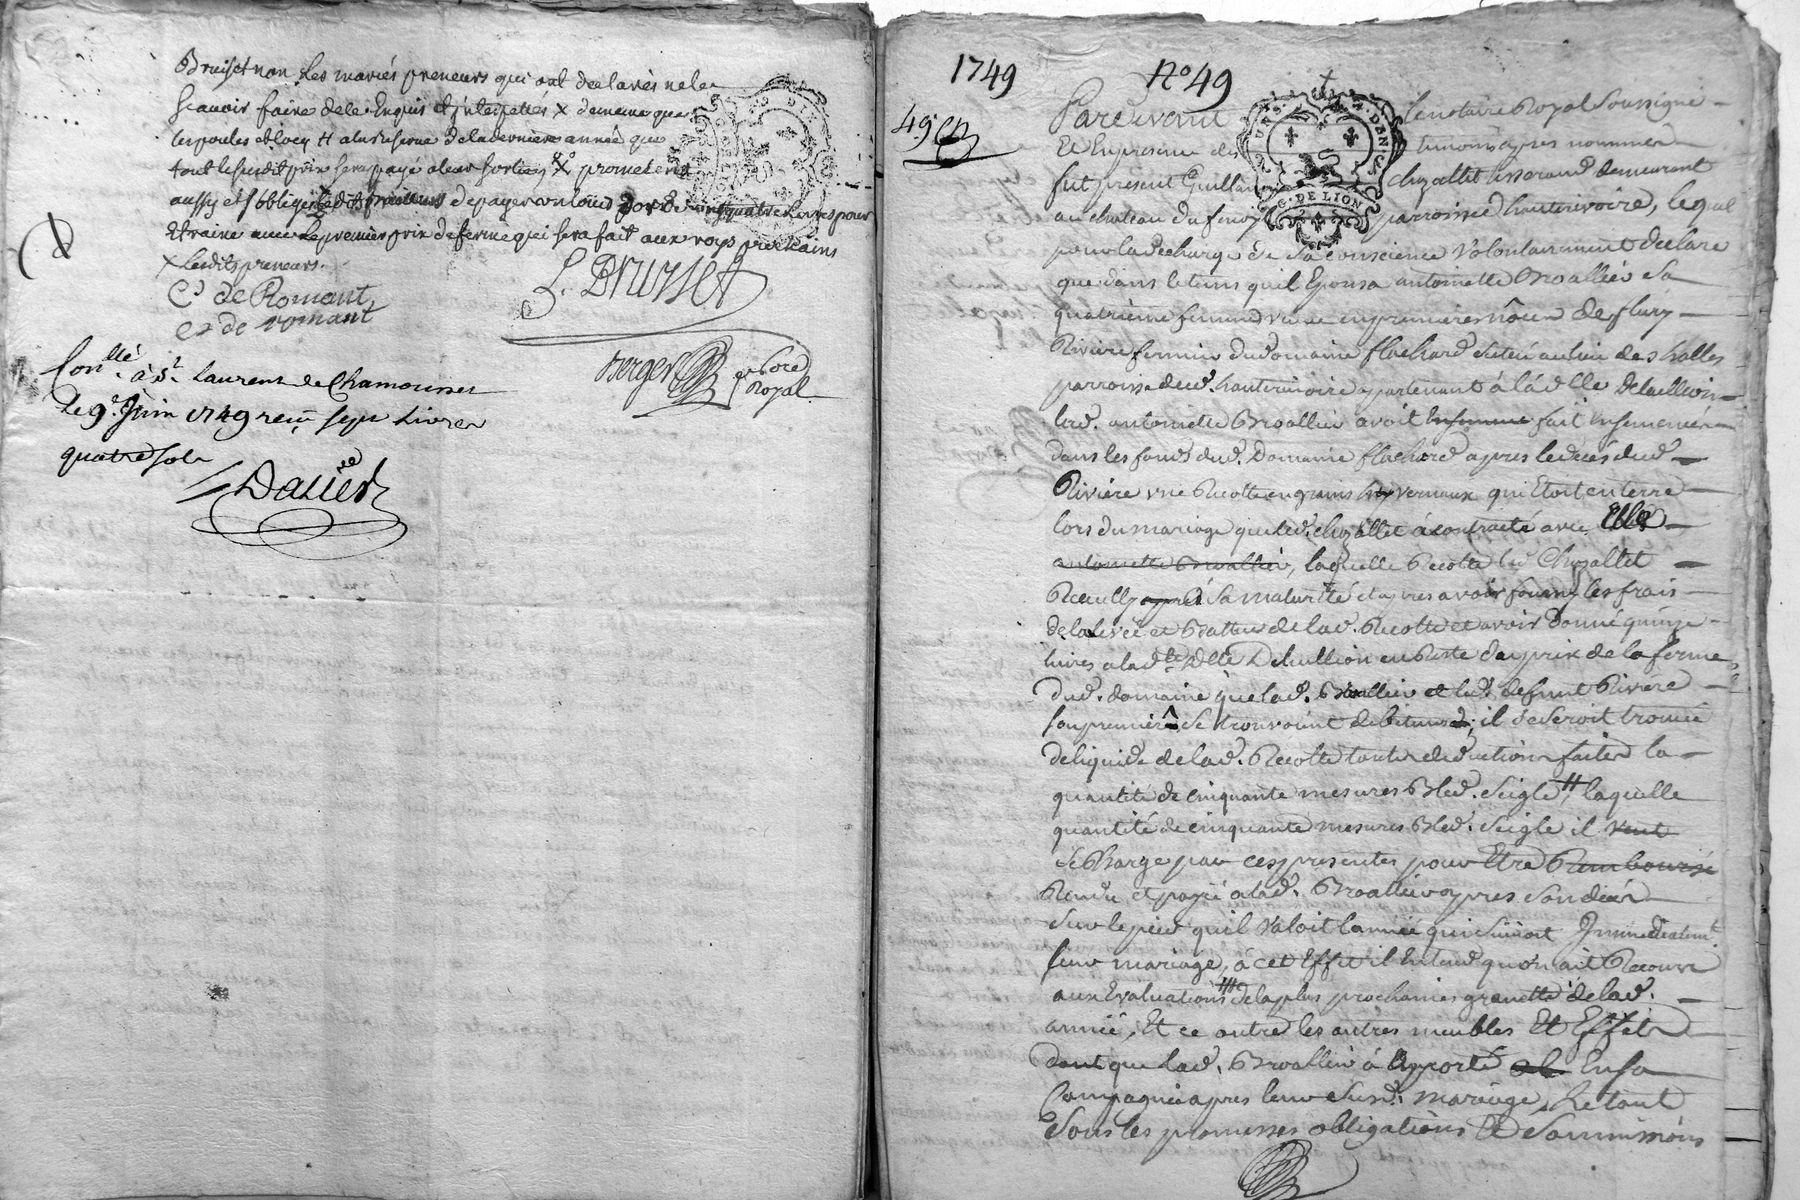 Bruiset non les mariés preneurs qui ont declarés ne le
scavoir faire de ce Enquis et interpellés x dememe que
les poules et # a la Reserve de la derniere année que
tout le susdit prix sera payé a leur sortie, x promettent
aussy et s'obligent de payer un louis d'or de vingt quatre livres pour
Etraine avec le premier prix de ferme qui sera fait aux roys prochains
x lesdits preneurs.
C^d de Romant
c^d de romant
L. Bruisset
Berger no^re
Royal
Con^llé à S^t. Laurent de Chamousset
le 9^e. Juin 1749 reçu sept Livres
quatre sols
Dalier
1749
N° 49
49^e
Pardevant le notaire Royal Soussigné
Et En presence des temoins apres nommés
fut present Guillau Chazallet tisserand demeurant
au chateau du parroisse d'hauterivoire, lequel
pour la decharge de sa conscience volontairement declare
que dans le tems qu'il Epousa antoinette Broallier sa
quatrieme femme veuve en premieres nôces de fleury
Riviere fermier du domaine flachard situé au lieu des halles
parroisse dud^t. hauterivoire apartenant à la d^elle
lad^e. antoinette Broallier avoit fait Ensemencer
dans les fonds dud^t. Domaine flachard apres le decés dud^t
Riviére une Recolte en grains hyvernaux qui Etoit en terre
lors du mariage que led^t. chazallet à contracté avec Elle
antoinette Broallier, laquelle Recolte led^t Chazallet
Recuilly après sa maturité et apres avoir fourny les frais
de la levée et Batture de lad^e. Recolte et avoir donné quinze
livres a lad^te. D^elle en Reste du prix de la ferme
dud^t. domaine que lad^e. Broallier et led^t defunt Riviére
son premier se trouvoient debiteurs, il se seroit trouvé
de liquide de lad^e. Recolte toutes deductions faites la
quantité de cinquante mesures Bled. Seigle #, laquelle
quantité de cinquante mesures Bled. Seigle il veut
se Charge par ces presentes pour Etre Remboursé
Rendu et payé a lad^e. Broallier apres son decés
sur le pied qu'il valoit l'année qui suivoit Immediatem^t.
leur mariage, à cet Effet il Entend qu'on ait Recours
aux Evaluations de la plus prochaines grenette de lad^e.
année, Et ce outre les autres meubles Et Effets
dont que lad^e. Broallier à Apporté En sa
Compagnie apres leur susd^t. mariage, Le tout
Sous les promesses obligations Et Soummisions